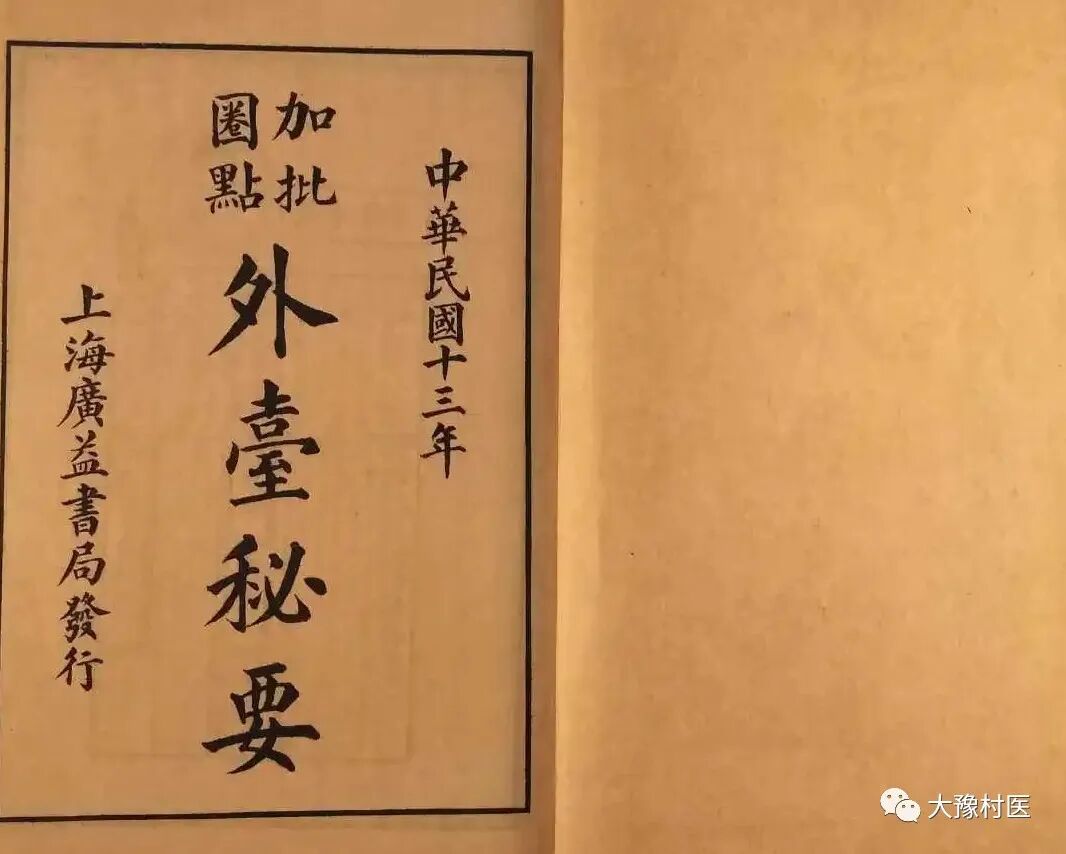 中華民國十三年
加批
圈點
外臺秘要
上海廣益書局發行
大豫村医